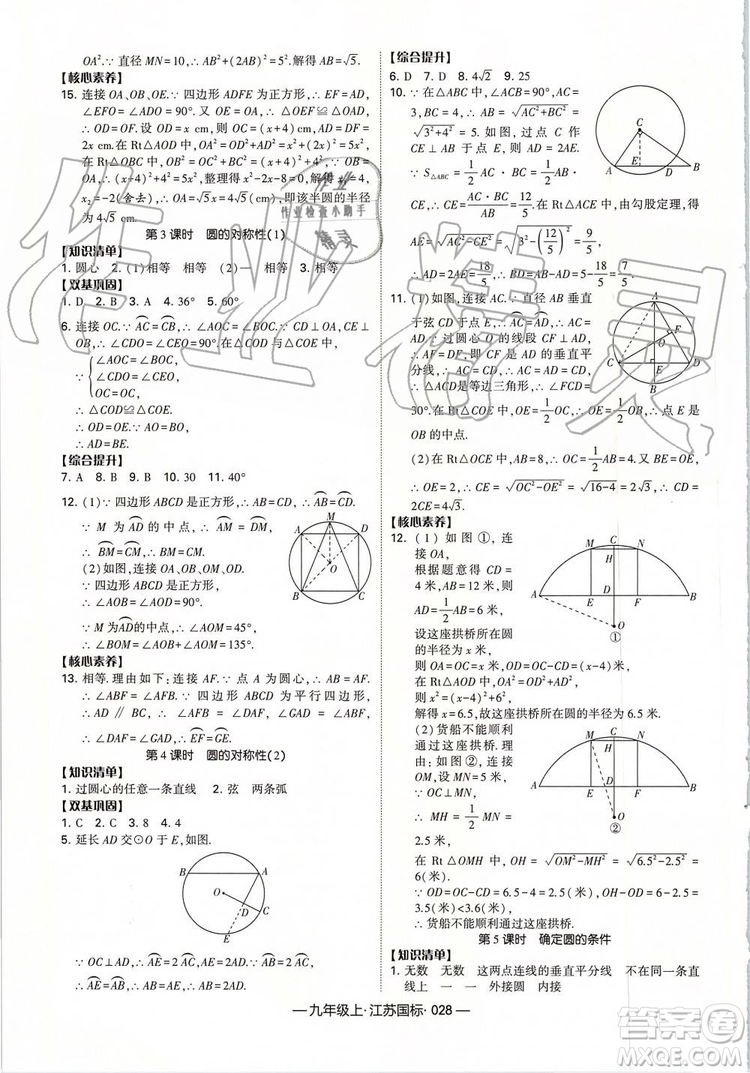 OA². ∵ 直径 MN=10, ∴ AB²+(2AB)²=5². 解得 AB=√5.
【核心素养】
15. 连接 OA、OB、OE. ∵ 四边形 ADFE 为正方形, ∴ EF=AD,
∠EFO=∠ADO=90°. 又 OE=OA, ∴ △OEF≌△OAD,
∴ OD=OF. 设 OD=x cm, 则 OC=(x+4) cm, AD=DF=
2x cm. 在 Rt△AOD 中, OB²=OC²+BC², OA²=OD²+AD²,
∵ OA=OB, ∴ (x+4)²+4²=x²+(2x)², 解得 x₁=4,
x₂=-2(舍去), ∴ OA=√5x=4√5 cm, 即该半圆的半径
为 4√5 cm.
第 3 课时 圆的对称性(1)
【知识清单】
1. 圆心 2. (1)相等 相等 (2)相等 相等
【双基巩固】
1. D 2. B 3. A 4. 36° 5. 60°
6. 连接 OC. ∵ AC=CB, ∴ ∠AOC=∠BOC. ∵ CD⊥OA, CE⊥
OB, ∴ ∠CDO=∠CEO=90°. 在△COD 与△COE 中,
∵ ∠AOC=∠BOC
∠CDO=∠CEO
OC=OC
∴ △COD≌△COE,
∴ OD=OE. ∵ AO=BO,
∴ AD=BE.
【综合提升】
7. A 8. B 9. B 10. 30 11. 40°
12. (1) ∵ 四边形 ABCD 是正方形, ∴ AB=CD, ∴ AB=CD.
∵ M 为 AD 的中点, ∴ AM=DM,
∴ BM=CM, ∴ BM=CM.
(2) 如图, 连接 OA、OB、OM、OD.
∵ 四边形 ABCD 是正方形,
∴ ∠AOB=∠AOD=90°.
∵ M 为AD的中点, ∴ ∠AOM=45°,
∴ ∠BOM=∠AOB+∠AOM=135°.
【核心素养】
13. 相等. 理由如下: ∵ 点 A 为圆心, ∴ AB=AF,
∴ ∠ABF=∠AFB. ∵ 四边形 ABCD 为平行四边形,
∴ AD∥BC, ∴ ∠AFB=∠DAF, ∠GAD=∠ABF,
∴ ∠DAF=∠GAD, ∴ EF=GE.
第 4 课时 圆的对称性(2)
【知识清单】
1. 过圆心的任意一条直线 2. 弦 两条弧
【双基巩固】
1. C 2. C 3. 8 4. 4
5. 延长 AD 交⊙O 于 E, 如图.
B A O C D E
∵ OC⊥AD, ∴ AE=2AC, AE=2AD. ∵ AB=2AC,
∴ AE=AB, ∴ AB=AE, ∴ AB=2AD.
【综合提升】
6. D 7. D 8. 4√2 9. 25
10. ∵ 在△ABC 中, ∠ACB=90°, AC=
3, BC=4, ∴ AB=√AC²+BC²=
√3²+4²=5. 如图, 过点 C 作
CE⊥AB 于点 E, 则 AD=2AE.
∵ S△ABC=1/2 AC·BC=1/2 AB·CE,
∴ CE=AC·BC/AB=12/5, 由勾股定理, 得
AE=√AC²-CE²=√3²-(12/5)²=9/5,
∴ AD=2AE=18/5, ∴ BD=AB-AD=5-18/5=7/5.
11. (1) 如图, 连接 AC. ∵ 直径 AB 垂直
于弦 CD 于点 E, ∴ AC=AD, ∴ AC=
AD. ∵ 过圆心 O 的线段 CF⊥AD,
∴ AF=DF, 即 CF 是 AD 的垂直平
分线, ∴ AC=CD, ∴ AC=AD=CD,
∴ △ACD是等边三角形, ∴ ∠FCD=
30°. 在 Rt△COE 中, OE=1/2 OC, ∴ OE=1/2 OB, ∴ 点 E 是
OB 的中点.
(2) 在 Rt△OCE 中, AB=8, ∴ OC=1/2 AB=4. 又∵ BE=
OE, ∴ OE=2, ∴ CE=√OC²-OE²=√16-4=2√3, ∴ CD=
2CE=4√3.
【核心素养】
12. (1) 如图①, 连
接 OA,
根据题意得 CD=
4 米, AB=12 米, 则
AD=1/2 AB=6(米),
设这座拱桥所在圆
的半径为 x 米,
则 OA=OC=x 米, OD=OC-CD=(x-4)米,
在 Rt△AOD 中, OA²=OD²+AD²,
则 x²=(x-4)²+6²,
解得 x=6.5, 故这座拱桥所在圆的半径为 6.5 米.
(2) 货船不能顺利
通过这座拱桥. 理
由如下: 如图②, 连接
OM, 设 MN=5 米,
∵ OC⊥MN,
∴ MH=1/2 MN=
2.5 米,
在 Rt△OMH 中, OH=√OM²-MH²=6(米),
∵ OD=OC-CD=6.5-4=2.5(米), ∴ OH-OD=6-2.5=
3.5(米)<3.6(米),
∴ 货船不能顺利通过这座拱桥.
第 5 课时 确定圆的条件
【知识清单】
1. 无数 无数 这两点连线的垂直平分线 不在同一条直
线上 一 一 外接圆 内接
—九年级上·江苏国标·028—